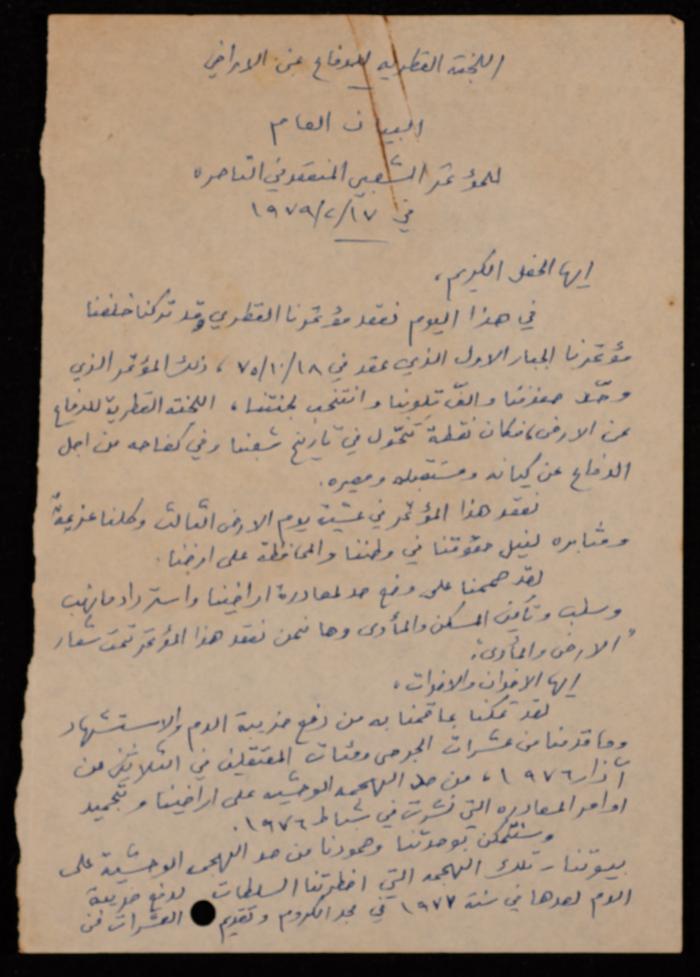 اللجنة القطرية للدفاع عن الاراضي
البيان العام
للمؤتمر الشعبي المنعقد في الناصره
في ١٧/٢/١٩٧٩
ايها الحفل الكريم ،
في هذا اليوم نعقد مؤتمرنا القطري وقد تركنا خلفنا
مؤتمرنا الجبار الاول الذي عقد في ١٨/١٠/٧٥ ، ذلك المؤتمر الذي
وحّد صفوفنا والّف قلوبنا وانتخب لجنتنا ، اللجنة القطرية للدفاع
عن الارض ، فكان نقطة تحّول في تاريخ شعبنا وفي كفاحه من اجل
الدفاع عن كيانه ومستقبله ومصيره .
نعقد هذا المؤتمر في عشية يوم الارض الثالث وكلنا عزيمةٌ
ومثابره لنيل حقوقنا في وطننا والمحافظة على ارضنا .
لقد صممنا على وضع حد لمصادرة اراضينا واسترداد ما نهب
وسلب وتأمين المسكن والمأوى وها نحن نعقد هذا المؤتمر تحت شعار
"الارض والمأوى" .
ايها الاخوان والاخوات ،
لقد تمكنا بما قمنا به من دفع ضريبة الدم والاستشهاد
وما قدمنا من عشرات الجرحى ومئات المعتقلين في الثلاثين من
آذار ١٩٧٦ ، من صد الهجمه الوحشيه على اراضينا وتجميد
اوامر المصادره التي نشرت في شباط ١٩٧٦ .
وسنتمكن بوحدتنا وصمودنا من صد الهجمه الوحشية على
بيوتنا ـ تلك الهجمه التي اضطرتنا السلطات لدفع ضريبة
الدم لصدها في سنة ١٩٧٧ في مجد الكروم وتقديم العشرات من